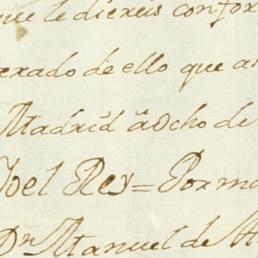 que le diereis confor
erado de ello que a
Madrid à ocho de
Yo el Rey = Por ma
Dn Manuel de